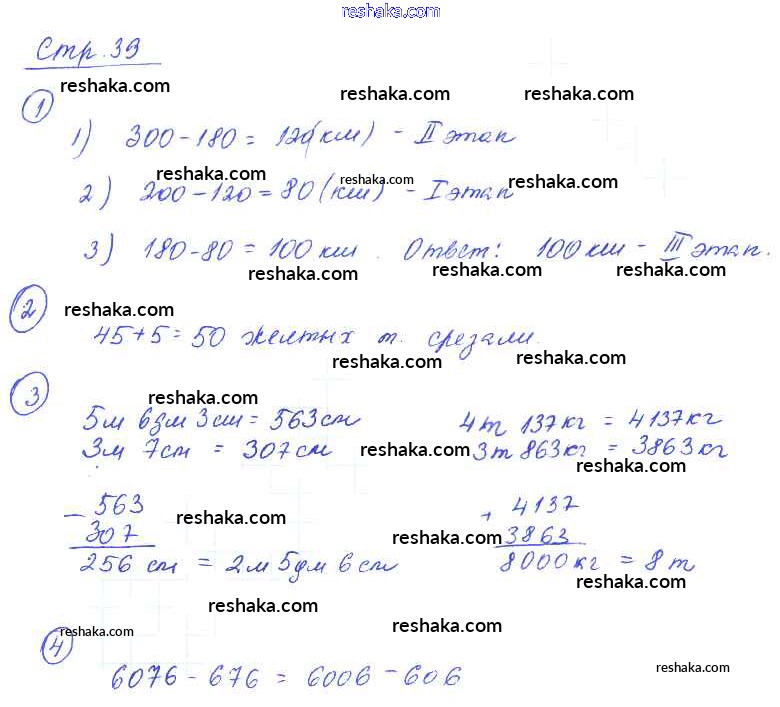 reshaka.com
Стр. 39
reshaka.com reshaka.com reshaka.com
1
1) 300-180 = 120(км) - II этап
reshaka.com reshaka.com reshaka.com
2) 200-120 = 80 (км) - I этап
3) 180-80 = 100 км. Ответ: 100 км - III этап.
reshaka.com reshaka.com reshaka.com
2 reshaka.com
45+5=50 желтых т. срезали.
reshaka.com reshaka.com
3 reshaka.com
5м 6дм 3см = 563см 4т 137кг = 4137кг
3м 7см = 307см reshaka.com 3т 863кг = 3863кг
reshaka.com
- 563 + 4137
reshaka.com reshaka.com
307 3863
reshaka.com
256 см = 2м 5дм 6см 8000кг = 8т
reshaka.com reshaka.com
reshaka.com reshaka.com
reshaka.com
4
6076 - 676 = 6006 - 606
reshaka.com